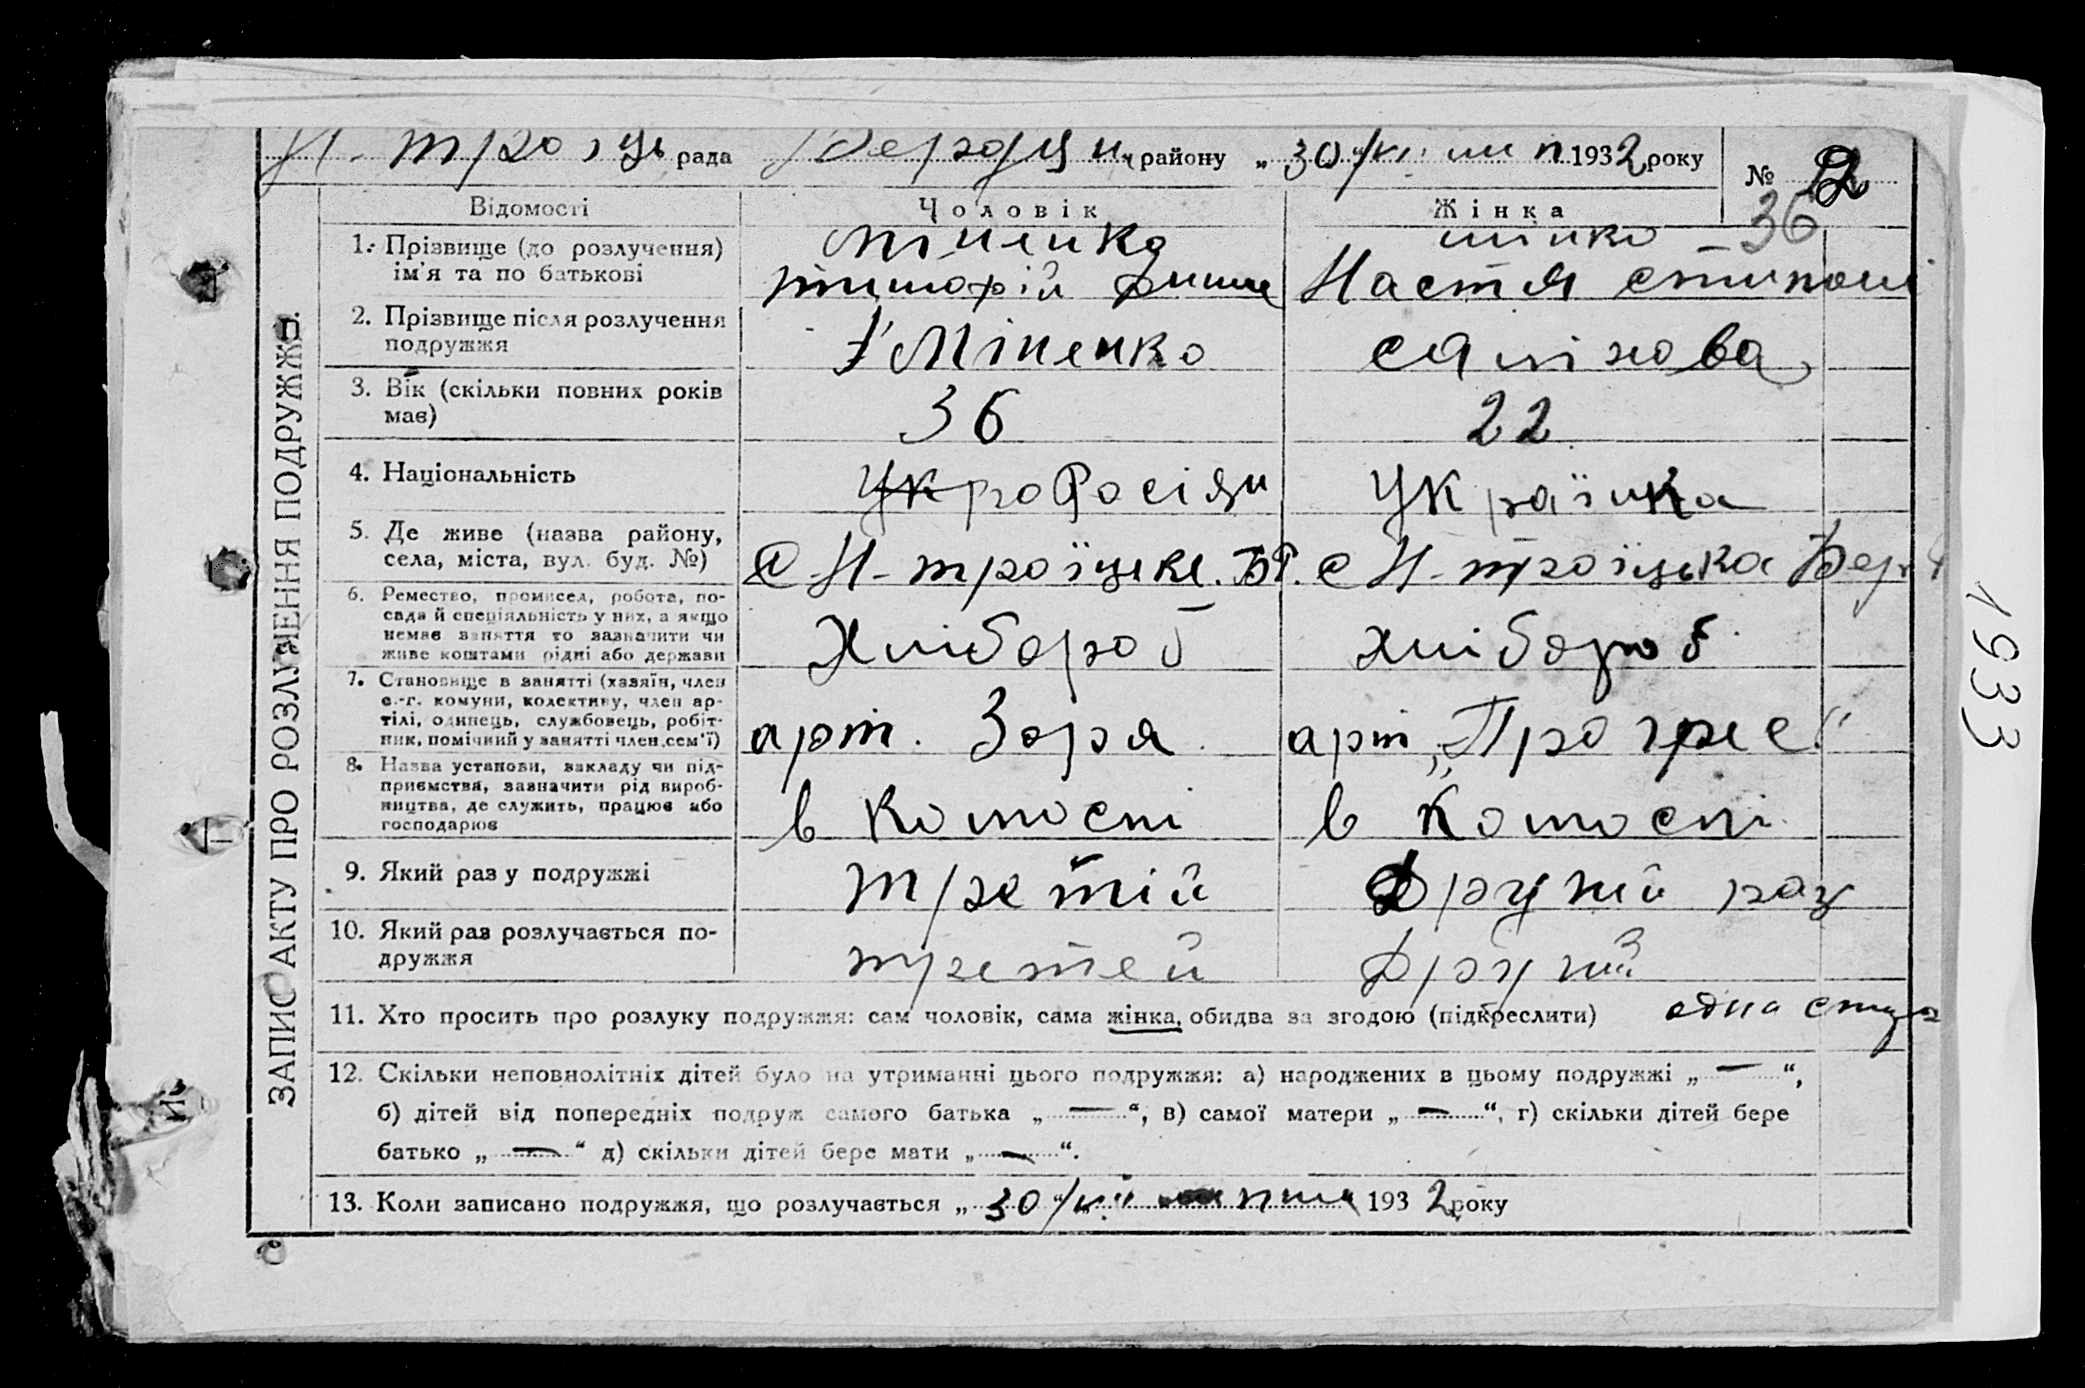 Н-троіць рада район у „30/VII 1932 року № 2
36
ЗАПИС АКТУ ПРО РОЗЛУЧЕННЯ ПОДРУЖЖЯ.
Відомості Чоловік Жінка
1. Прізвище (до розлучення) ім'я та по батькові
Міненко
Тимофій
Настя
2. Прізвище після розлучення подружжя
Міненко
3. Вік (скільки повних років має)
36 22
4. Національність
Росіян Українка
5. Де живе (назва району, села, міста, вул. буд. №)
с. Н-троїцьке. БР. с Н-троїцька
6. Ремество, промисел, робота, посада й спеціяльність у них, а якщо немає заняття то зазначити чи живе коштами рідні або держави
Хлібороб хлібороб
7. Становище в занятті (хазяїн, член с.-г. комуни, колективу, член артілі, одинець, службовець, робітник, помічний у занятті член сем'ї)
арт. Зоря арт „Прогрес"
8. Назва установи, закладу чи підприємства, зазначити рід виробництва, де служить, працює або господарює
в колгоспі в колгоспі
9. Який раз у подружжі
третій Другий раз
10. Який раз розлучається подружжя
третей Другий
11. Хто просить про розлуку подружжя: сам чоловік, сама жінка, обидва за згодою (підкреслити) одна
12. Скільки неповнолітніх дітей було на утриманні цього подружжя: а) народжених в цьому подружжі „—“,
б) дітей від попередніх подруж самого батька „—“, в) самої матери „—“, г) скільки дітей бере
батько „—“ д) скільки дітей бере мати „—“.
13. Коли записано подружжя, що розлучається „30/VII 1932 року
1933